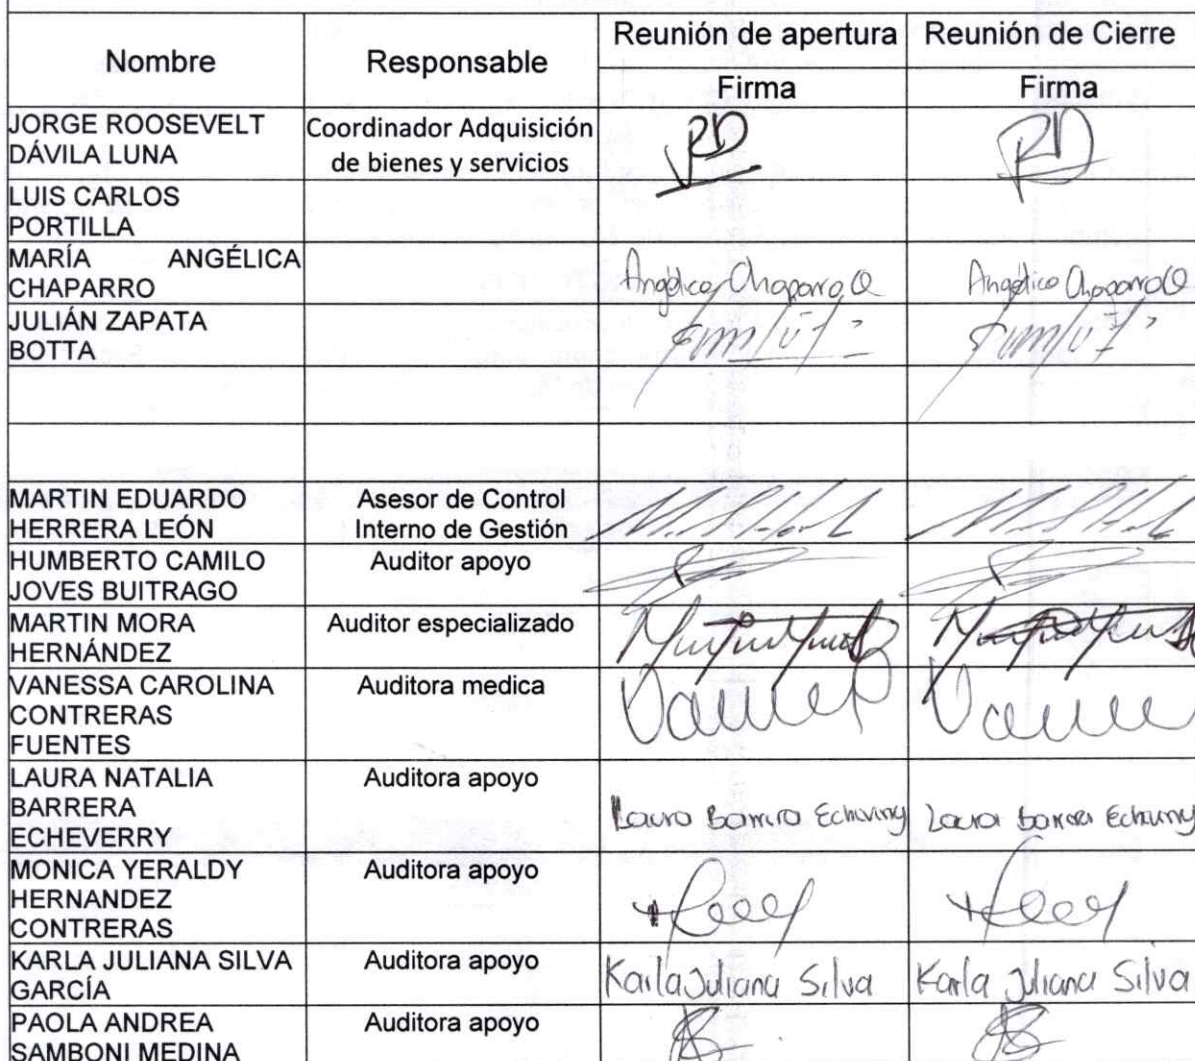 Nombre
Responsable
Reunión de apertura
Reunión de Cierre
Firma
Firma
JORGE ROOSEVELT
DÁVILA LUNA
Coordinador Adquisición
de bienes y servicios
LUIS CARLOS
PORTILLA
MARÍA ANGÉLICA
CHAPARRO
Angélica Chaparro Q
Angélica Chaparro Q
JULIÁN ZAPATA
BOTTA
MARTIN EDUARDO
HERRERA LEÓN
Asesor de Control
Interno de Gestión
HUMBERTO CAMILO
JOVES BUITRAGO
Auditor apoyo
MARTIN MORA
HERNÁNDEZ
Auditor especializado
VANESSA CAROLINA
CONTRERAS
FUENTES
Auditora medica
LAURA NATALIA
BARRERA
ECHEVERRY
Auditora apoyo
Laura Barrera Echeverry
Laura Barrera Echeverry
MONICA YERALDY
HERNANDEZ
CONTRERAS
Auditora apoyo
KARLA JULIANA SILVA
GARCÍA
Auditora apoyo
Karla Juliana Silva
Karla Juliana Silva
PAOLA ANDREA
SAMBONI MEDINA
Auditora apoyo